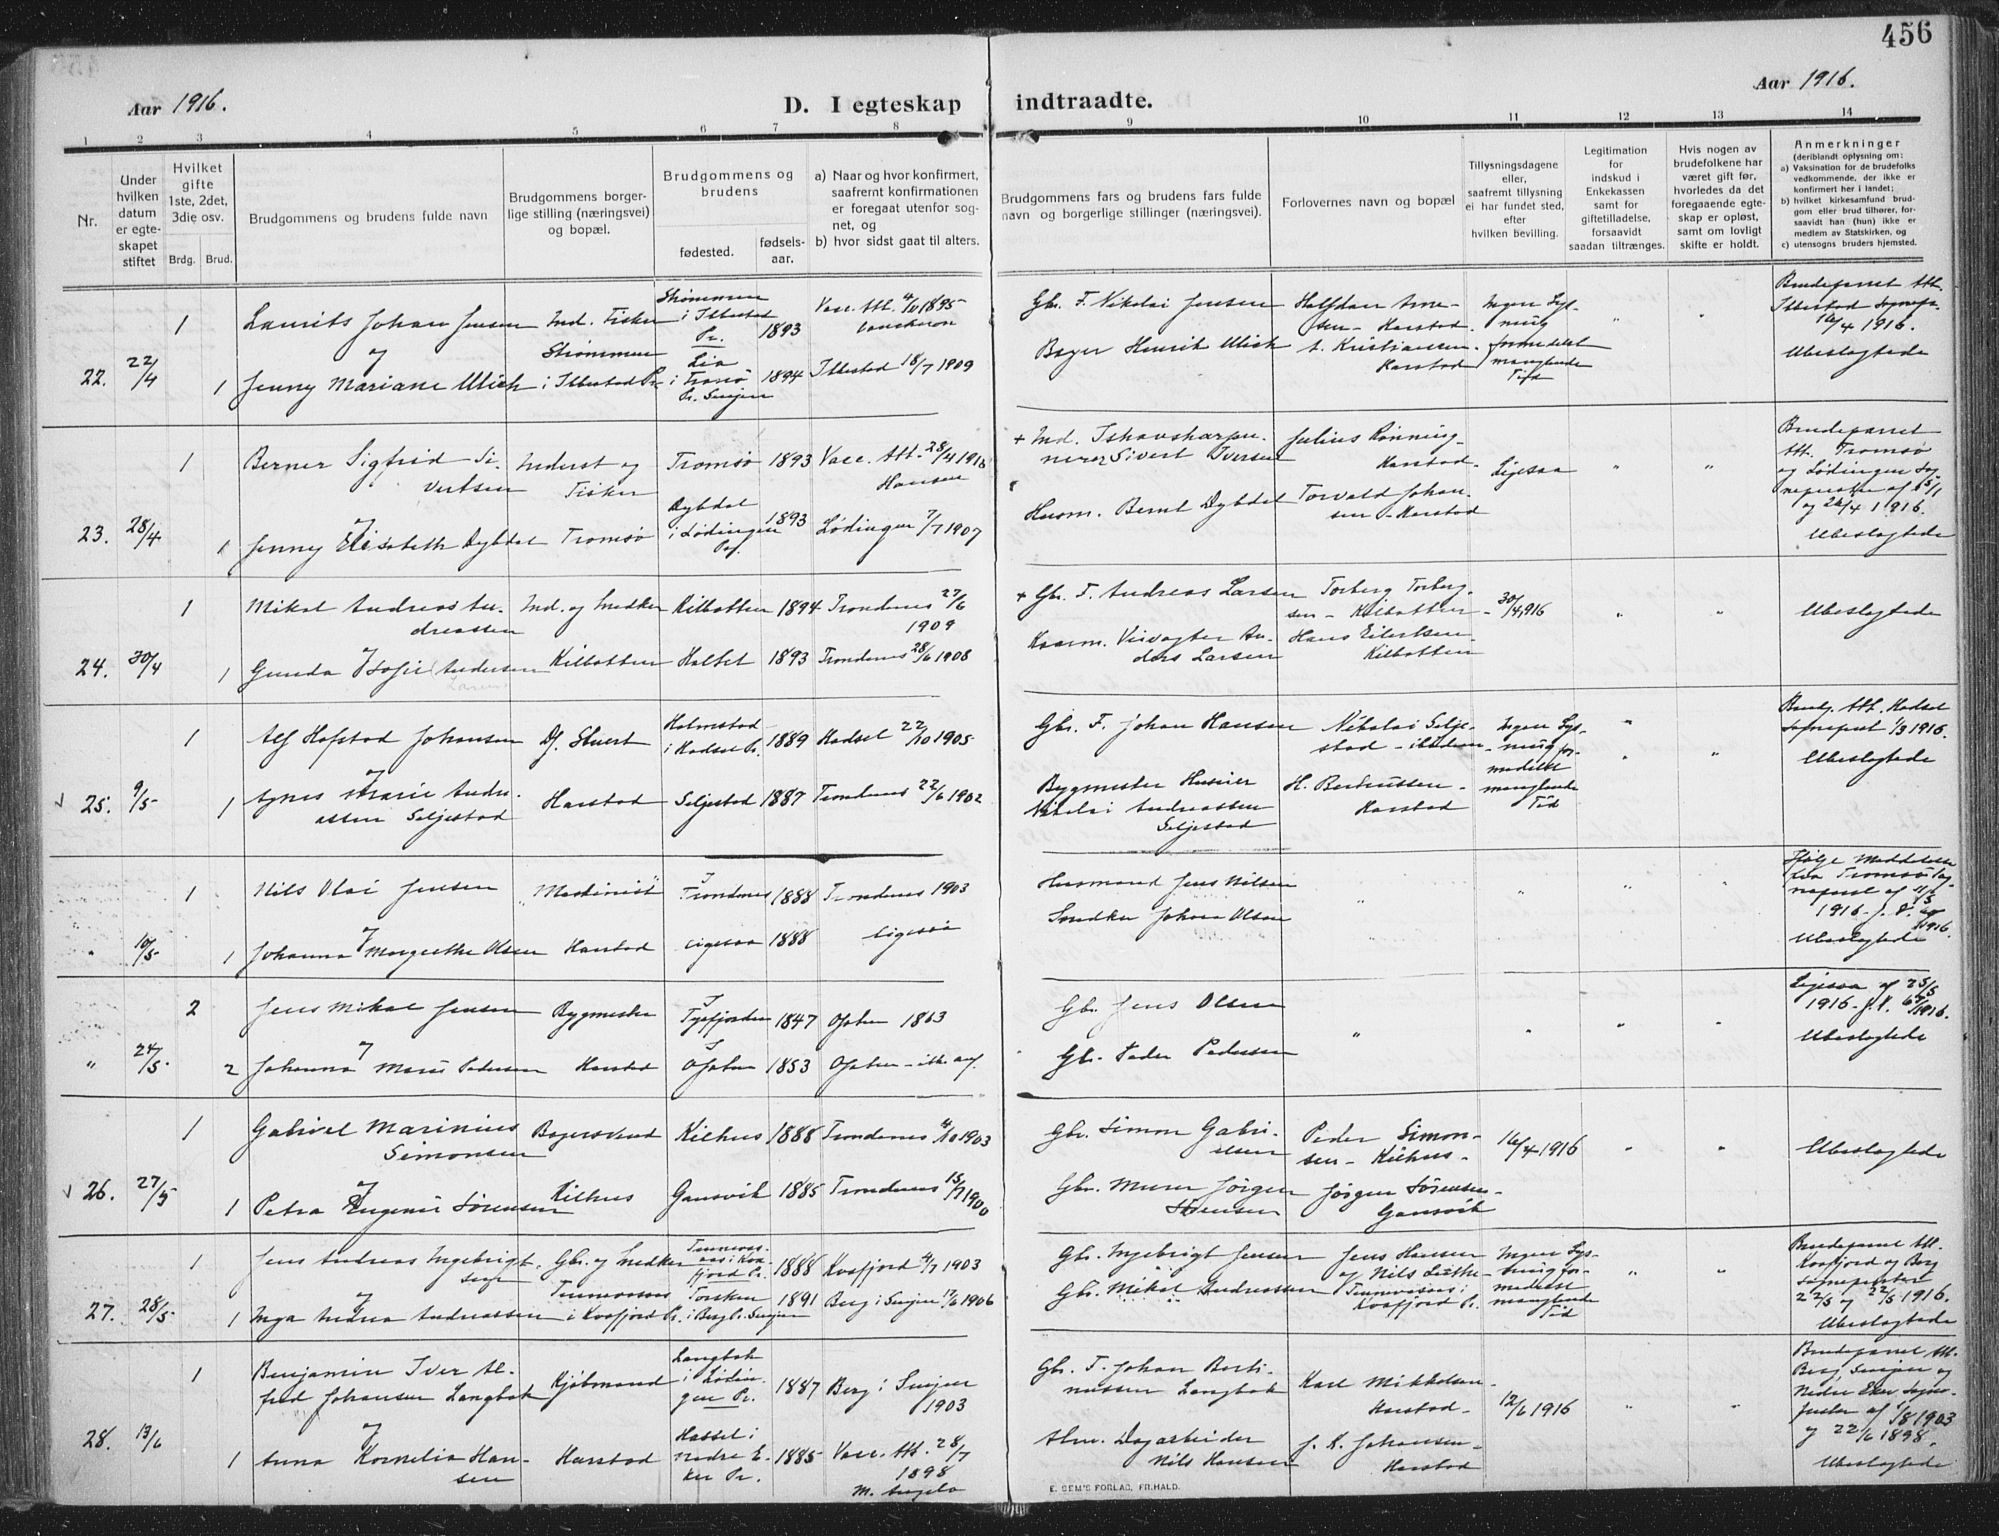 456
Aar 1916.
D. I egteskap indtraadte.
Aar 1916.
1 2 3 4 5 6 7 8 9 10 11 12 13 14
Nr.
Under hvilken datum er egteskapet stiftet
Hvilket gifte 1ste, 2det, 3die osv.
Brdg. Brud.
Brudgommens og brudens fulde navn
Brudgommens borgerlige stilling (næringsvei) og bopæl.
Brudgommens og brudens
fødested.
fødselsaar.
a) Naar og hvor konfirmert, saafremt konfirmationen er foregaat utenfor sognet, og
b) hvor sidst gaat til alters.
Brudgommens fars og brudens fars fulde navn og borgerlige stillinger (næringsvei).
Forlovernes navn og bopæl
Tillysningsdagene eller, saafremt tillysning ei har fundet sted, efter hvilken bevilling.
Legitimation for indskud i Enkekassen samt for giftetilladelse, forsaavidt saadan tiltrænges.
Hvis nogen av brudefolkene har været gift før, hvorledes da det foregaaende egteskap er opløst, samt om lovligt skifte er holdt.
Anmerkninger
(deriblandt oplysning om:
a) Vaksination for de brudefolks vedkommende, der ikke er konfirmert her i landet;
b) hvilket kirkesamfund brudgom eller brud tilhører, forsaavidt han (hun) ikke er medlem av Statskirken, og
c) utensogns bruders hjemsted.
22. 22/4
1 Laurits Johan Jensen Ind. Fisker Strømmen i Ibbestad Pr. 1893 Vacc. Att. 4/10 1895
og
1 Jenny Mariane Ulich Strømmen i Ibbestad Pr. Lia i Tranø Pr. Senjen 1894 Ibbestad 18/7 1909
Gbr. F. Nikolai Jensen Halfdan Arnesen - Harstad.
Bager Henrik Ulich A. Kristiansen - Harstad
Ingen Lysning formedelst manglende Tid
Brudeparret Att. Ibbestad Sognepr. 16/4 1916.
Ubeslægtede
23. 28/4
1 Berner Sigfrid Sivertsen Inderst og Fisker Tromsø 1893 Vacc. Att. 28/4 1916 Hansen
og
1 Jenny Elisabeth Dybdal Tromsø Dybdal i Lødingen Pr. 1893 Lødingen 7/7 1907
+ Ind. Ishavsharpunerer Sivert Iversen Julius Rønning - Harstad -
Husm. Bernt Dybdal Torvald Johansen - Harstad
Ligesaa
Brudeparret Att. Tromsø og Lødingen Sogneprester af 15/1 og 26/4 1916.
Ubeslægtede
24. 30/4
1 Mikal Andreas Andreassen Ind. og Snedker Kilbotten 1894 Trondenes 27/6 1909
og
1 Gunda Sofie Andersen Kilbotten Haltet 1893 Trondenes 28/6 1908
+ Gbr. F. Andreas Larsen Torberg Torbergsen - Kilbotten -
Kaarm. Veivogter Anders Larsen Hans Eilertsen - Kilbotten
30/4 1916
Ubeslægtede
25. 9/5
1 Alf Hofstad Johansen Df. Stuert Holmstad i Hadsel Pr. 1889 Hadsel 22/10 1905
og
1 Agnes Marie Andreassen Seljestad Harstad Seljestad 1887 Trondenes 22/6 1902
Gbr. F. Johan Hansen Nikolai Seljestad - ibidem -
Bygmester Huseier Nikolai Andreassen Seljestad H. Berdnussen - Harstad
Ingen Lysning formedelst manglende Tid
Brudg. Att. Hadsel Sognepræst 1/3 1916.
Ubeslægtede
" 10/5
1 Nils Olai Jensen Maskinist Trondenes 1888 Trondenes 1903
og
1 Johanna Margrethe Olsen Harstad Ligesaa 1888 Ligesaa
Husmand Jens Nilsen
Snedker Johan Olsen
Ifølge Meddelelse fra Tromsø Sognepræst af 11/5 1916
Ubeslægtede
" 24/5
2 Jens Mikal Jensen Bygmester Tysfjorden 1847 Ofoten 1863
og
2 Johanna Marie Pedersen Harstad Ofoten 1853 Ofoten
Gbr. Jens Olsen
Gbr. Peder Pedersen
Ligesaa af 25/5 1916
Ubeslægtede
26. 27/5
1 Gabriel Marinius Simonsen Bagersvend Kilhus 1888 Trondenes 4/10 1903
og
1 Petra Eugenie Sørensen Kilhus Gansvik 1885 Trondenes 15/7 1900
Gbr. Simon Gabrielsen Peder Simonsen - Kilhus -
Gbr. Murer Jørgen Sørensen Jørgen Sørensen - Gansvik
16/4 1916
Ubeslægtede
27. 28/5
1 Jens Andreas Ingebrigtsen Gbr. og Snedker Tennevosnes i Kvæfjord Pr. 1888 Kvæfjord 4/7 1903
og
1 Inga Andrea Andreassen Torsken i Berg Pr. Senjen 1891 Berg i Senjen 17/6 1906
Gbr. Ingebrigt Jensen Jens Hansen
Gbr. Mikal Andreassen og Nils
Ingen Lysning formedelst manglende Tid
Brudeparret Att. Kvæfjord og Berg Sogneprester 22/5 og 22/5 1916.
Ubeslægtede
28. 13/6
1 Benjamin Iver Alfred Johansen Langbak Kjøbmand Langbak i Lødingen Pr. 1887 Berg i Senjen 1903
og
1 Anna Kornelia Hansen Harstad Hassel i nedre Eker Pr. 1885 Vacc. Att. 28/7 1898
Gbr. F. Johan Bertinussen Langbak Karl Mikkelsen - Harstad -
Dagarbeider Nils Hansen J. K. Johansen - Harstad
12/6 1916
Brudeparret Att. Berg, Senjen og Nedre Eker 1/8 1903 og 22/6 1898.
Ubeslægtede
E. SEM'S FORLAG, FR.HALD.